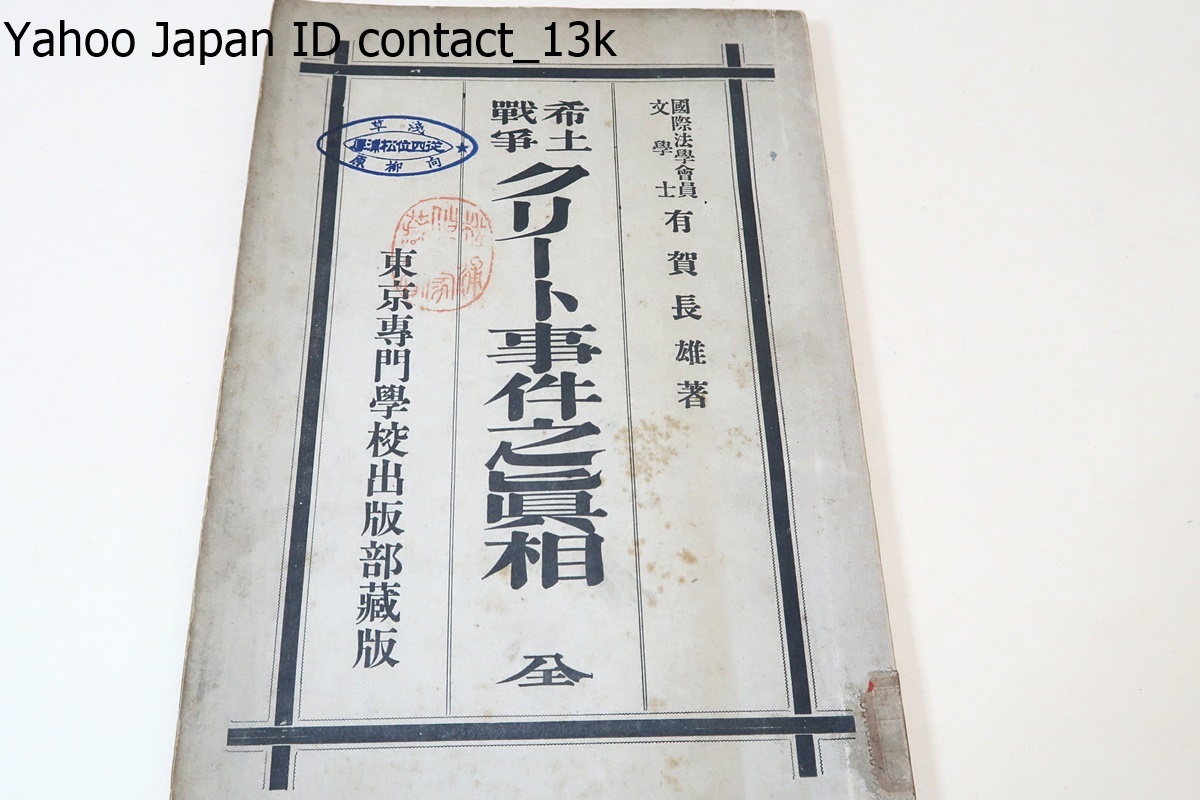 Yahoo Japan ID contact_13k
國際法學會員
文學士
有賀長雄著
希土
戰爭
クリート事件之眞相 全
東京專門學校出版部藏版
淺草
從四位松浦厚
向柳原